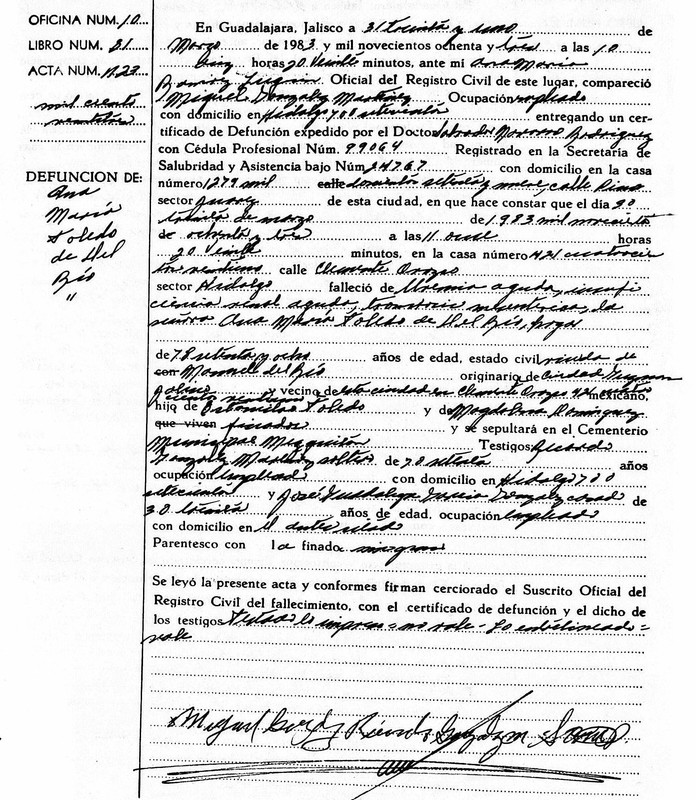 OFICINA NUM. 10
LIBRO NUM. 21
ACTA NUM. 1123
mil ciento
veintitrés
DEFUNCION DE:
Ana
María
Toledo
de Del
Río
"
En Guadalajara, Jalisco a 31 treinta y uno de
Marzo de 1983 y mil novecientos ochenta y tres a las 10
diez horas 20 veinte minutos, ante mi Ana María
Ramírez Oficial del Registro Civil de este lugar, compareció
Miguel González Martínez Ocupación empleado
con domicilio en Hidalgo 700 setecientos entregando un cer-
tificado de Defunción expedido por el Doctor Salvador Moreno Rodríguez
con Cédula Profesional Núm. 99064 Registrado en la Secretaría de
Salubridad y Asistencia bajo Núm 24767 con domicilio en la casa
número 1279 mil calle doscientos setenta y nueve, calle Pino
sector Juárez de esta ciudad, en que hace constar que el día 30
treinta de marzo de 1983 mil novecientos
de ochenta y tres a las 11 once horas
20 veinte minutos, en la casa número 421 cuatrocien
tos veintiuno calle Clemente Orozco
sector Hidalgo falleció de Uremia aguda, insufi
ciencia renal aguda, trombosis mesenterica, la
señora Ana María Toledo de Del Río,
de 78 setenta y ocho años de edad, estado civil viuda de
con Manuel del Río originario de Ciudad Guzmán
Jalisco y vecino de esta ciudad en Clemente Orozco 421 mexicano,
hijo de Estanislao Toledo y de Magdalena Domínguez
que viven finados y se sepultará en el Cementerio
Municipal Mezquitán Testigos Ricardo
González soltero de 70 setenta años
ocupación empleado con domicilio en Hidalgo 700
setecientos y José García González casado de
30 treinta años de edad, ocupación empleado
con domicilio en el
Parentesco con la finada ninguno
Se leyó la presente acta y conformes firman cerciorado el Suscrito Oficial del
Registro Civil del fallecimiento, con el certificado de defunción y el dicho de
los testigos Testado lo impreso = no vale - Lo entrelineado =
vale
Miguel Ricardo